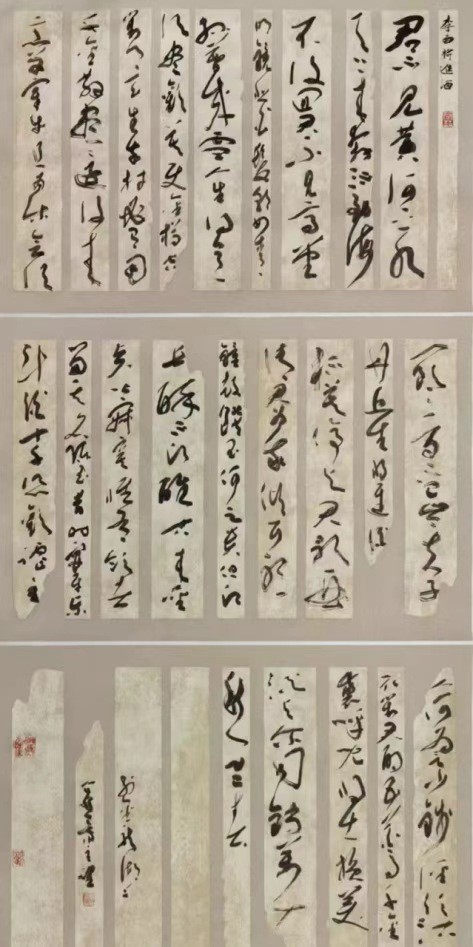 李白将進酒
君不見黄河之水
天上来奔流到海
不復回君不見高堂
明鏡悲白髮朝如青丝
暮成雪人生得意
須盡歡莫使金樽空
對月天生我材必有用
千金散盡還復来
烹羊宰牛且為樂會須
一飲三百杯岑夫子
丹丘生将進酒
杯莫停与君歌一曲
請君為我傾耳听
鐘鼓饌玉何足貴但願
長醉不願醒古来聖
賢皆寂寞惟有飲者
留其名陳王昔時宴平樂
斗酒十千恣歡謔主
人何為言少錢徑須沽
取對君酌五花馬千金
裘呼兒将出換美
酒与尔同銷萬古